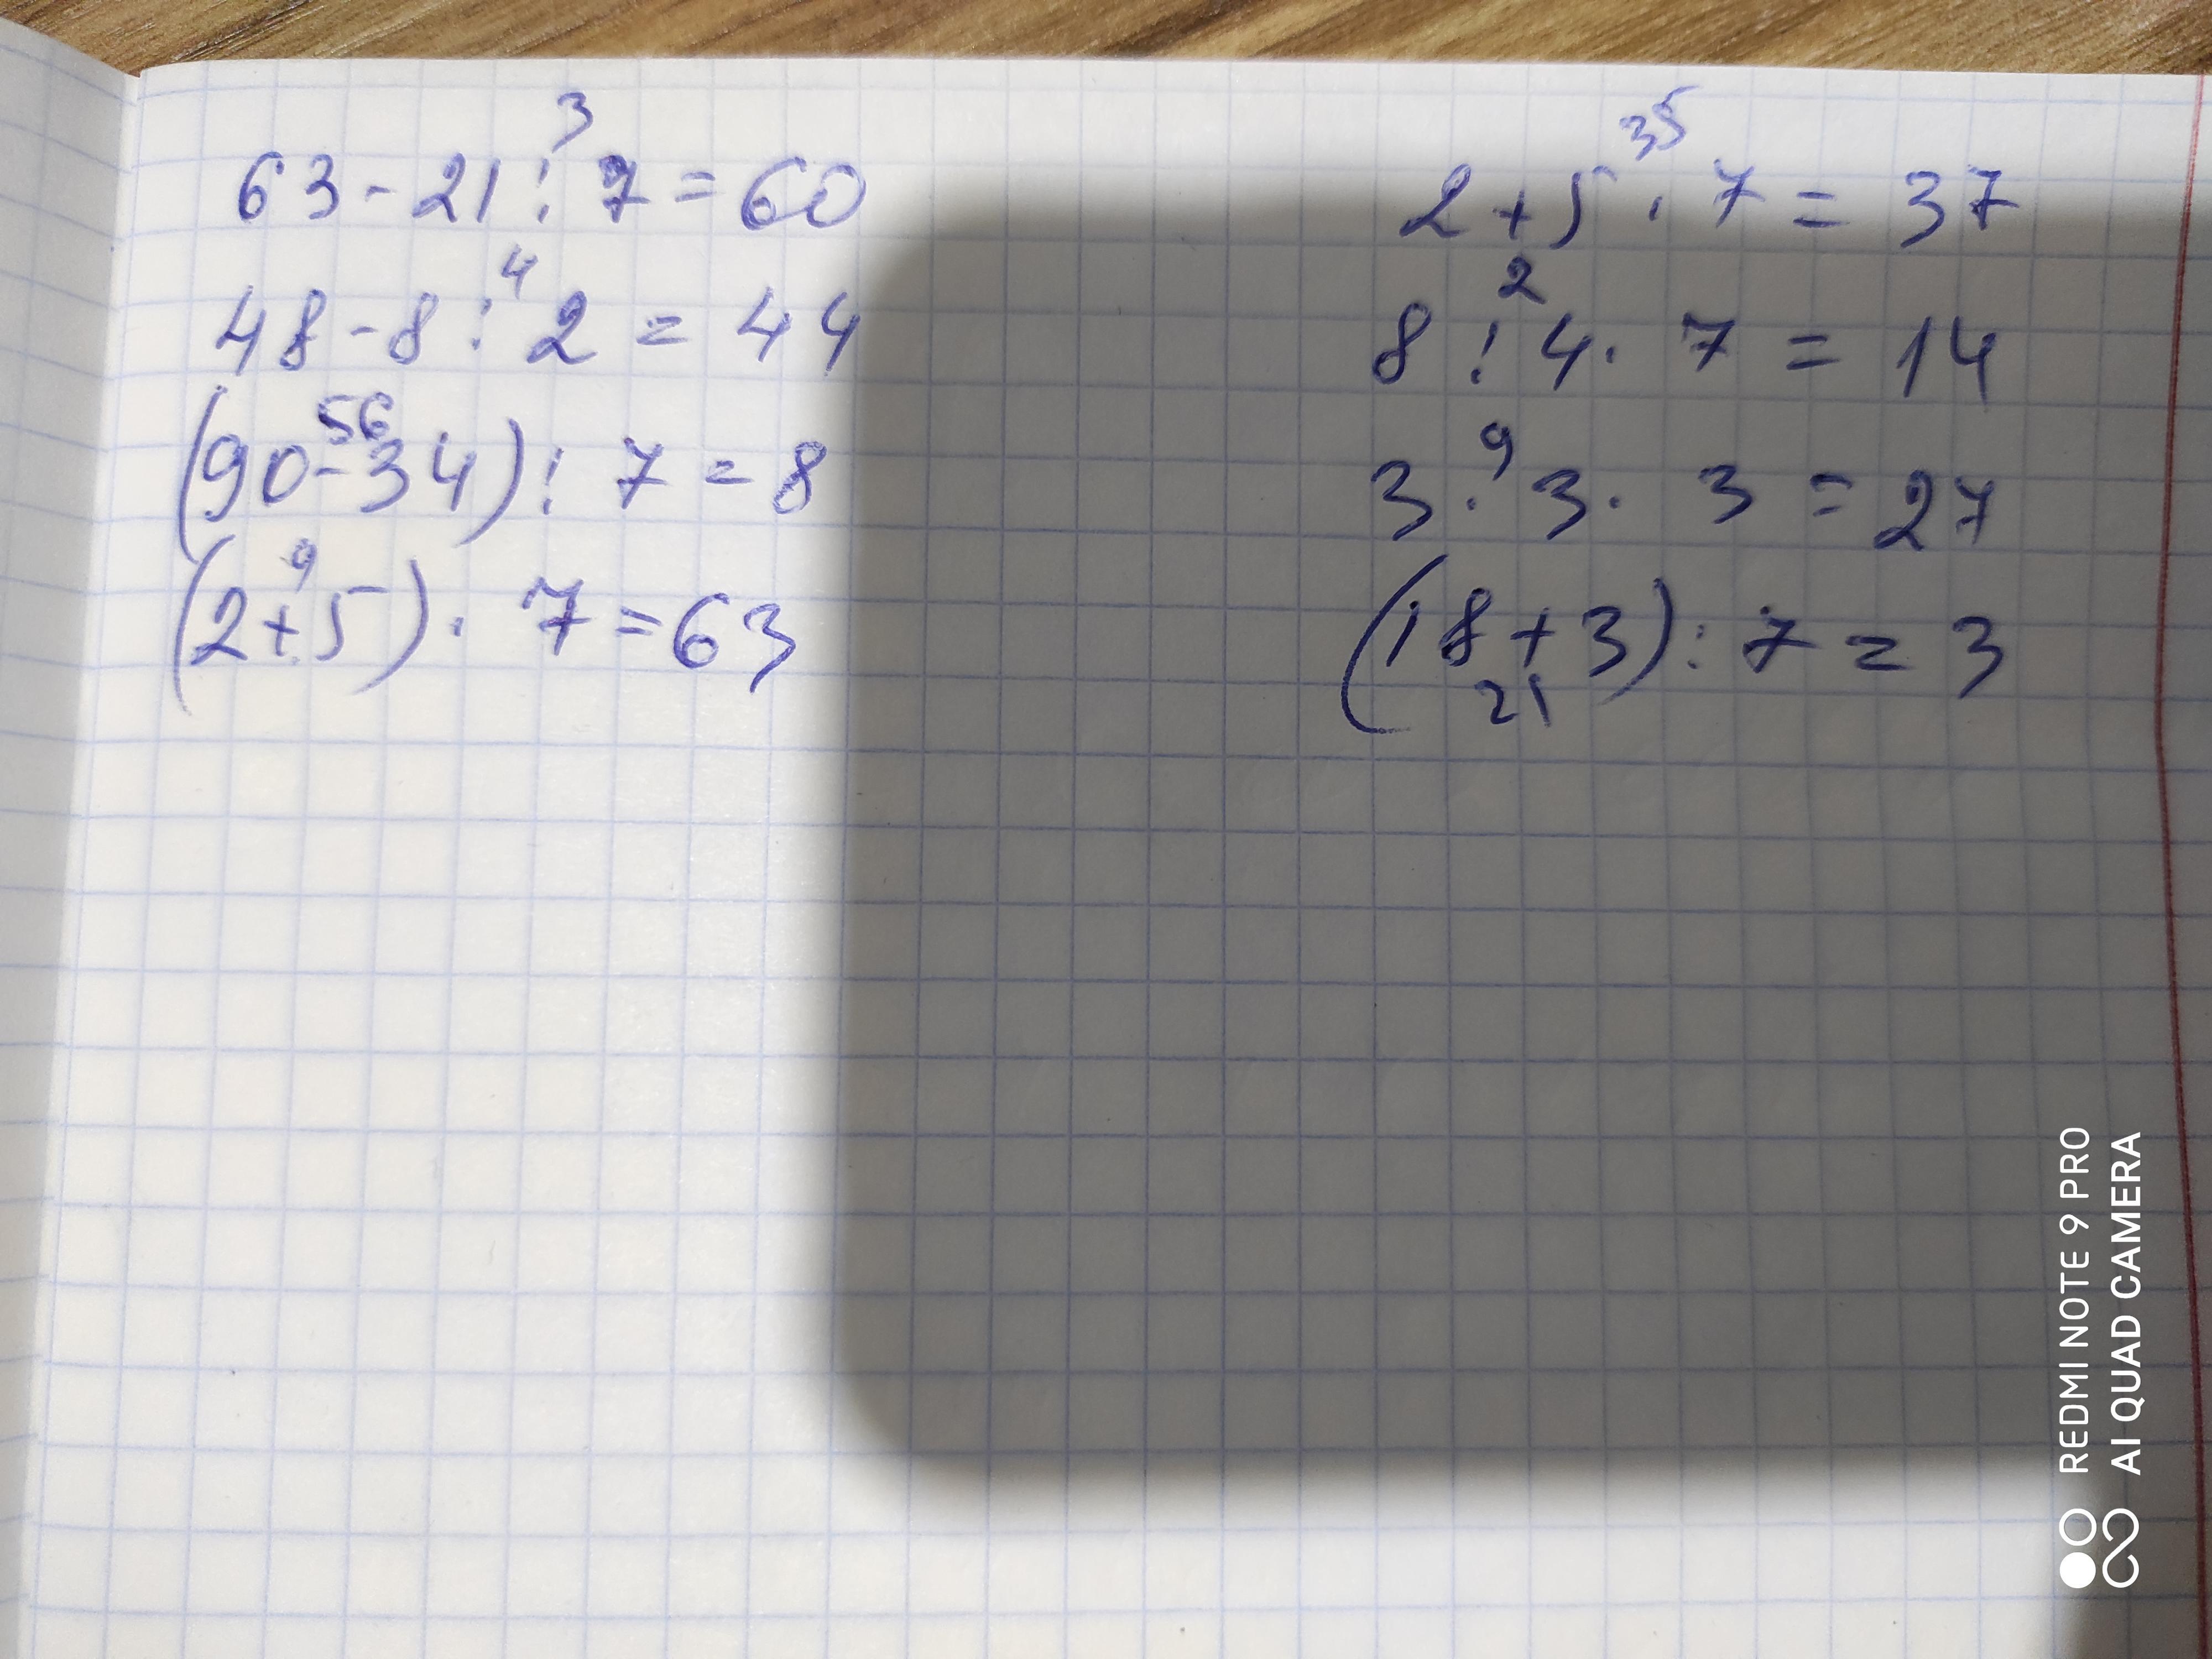 3
63 - 21 : 7 = 60
4
48 - 8 : 2 = 44
56
(90 - 34) : 7 = 8
9
(2 + 5) · 7 = 63
35
2 + 5 · 7 = 37
2
8 : 4 · 7 = 14
9
3 · 3 · 3 = 27
(18 + 3) : 7 = 3
21
REDMI NOTE 9 PRO
AI QUAD CAMERA